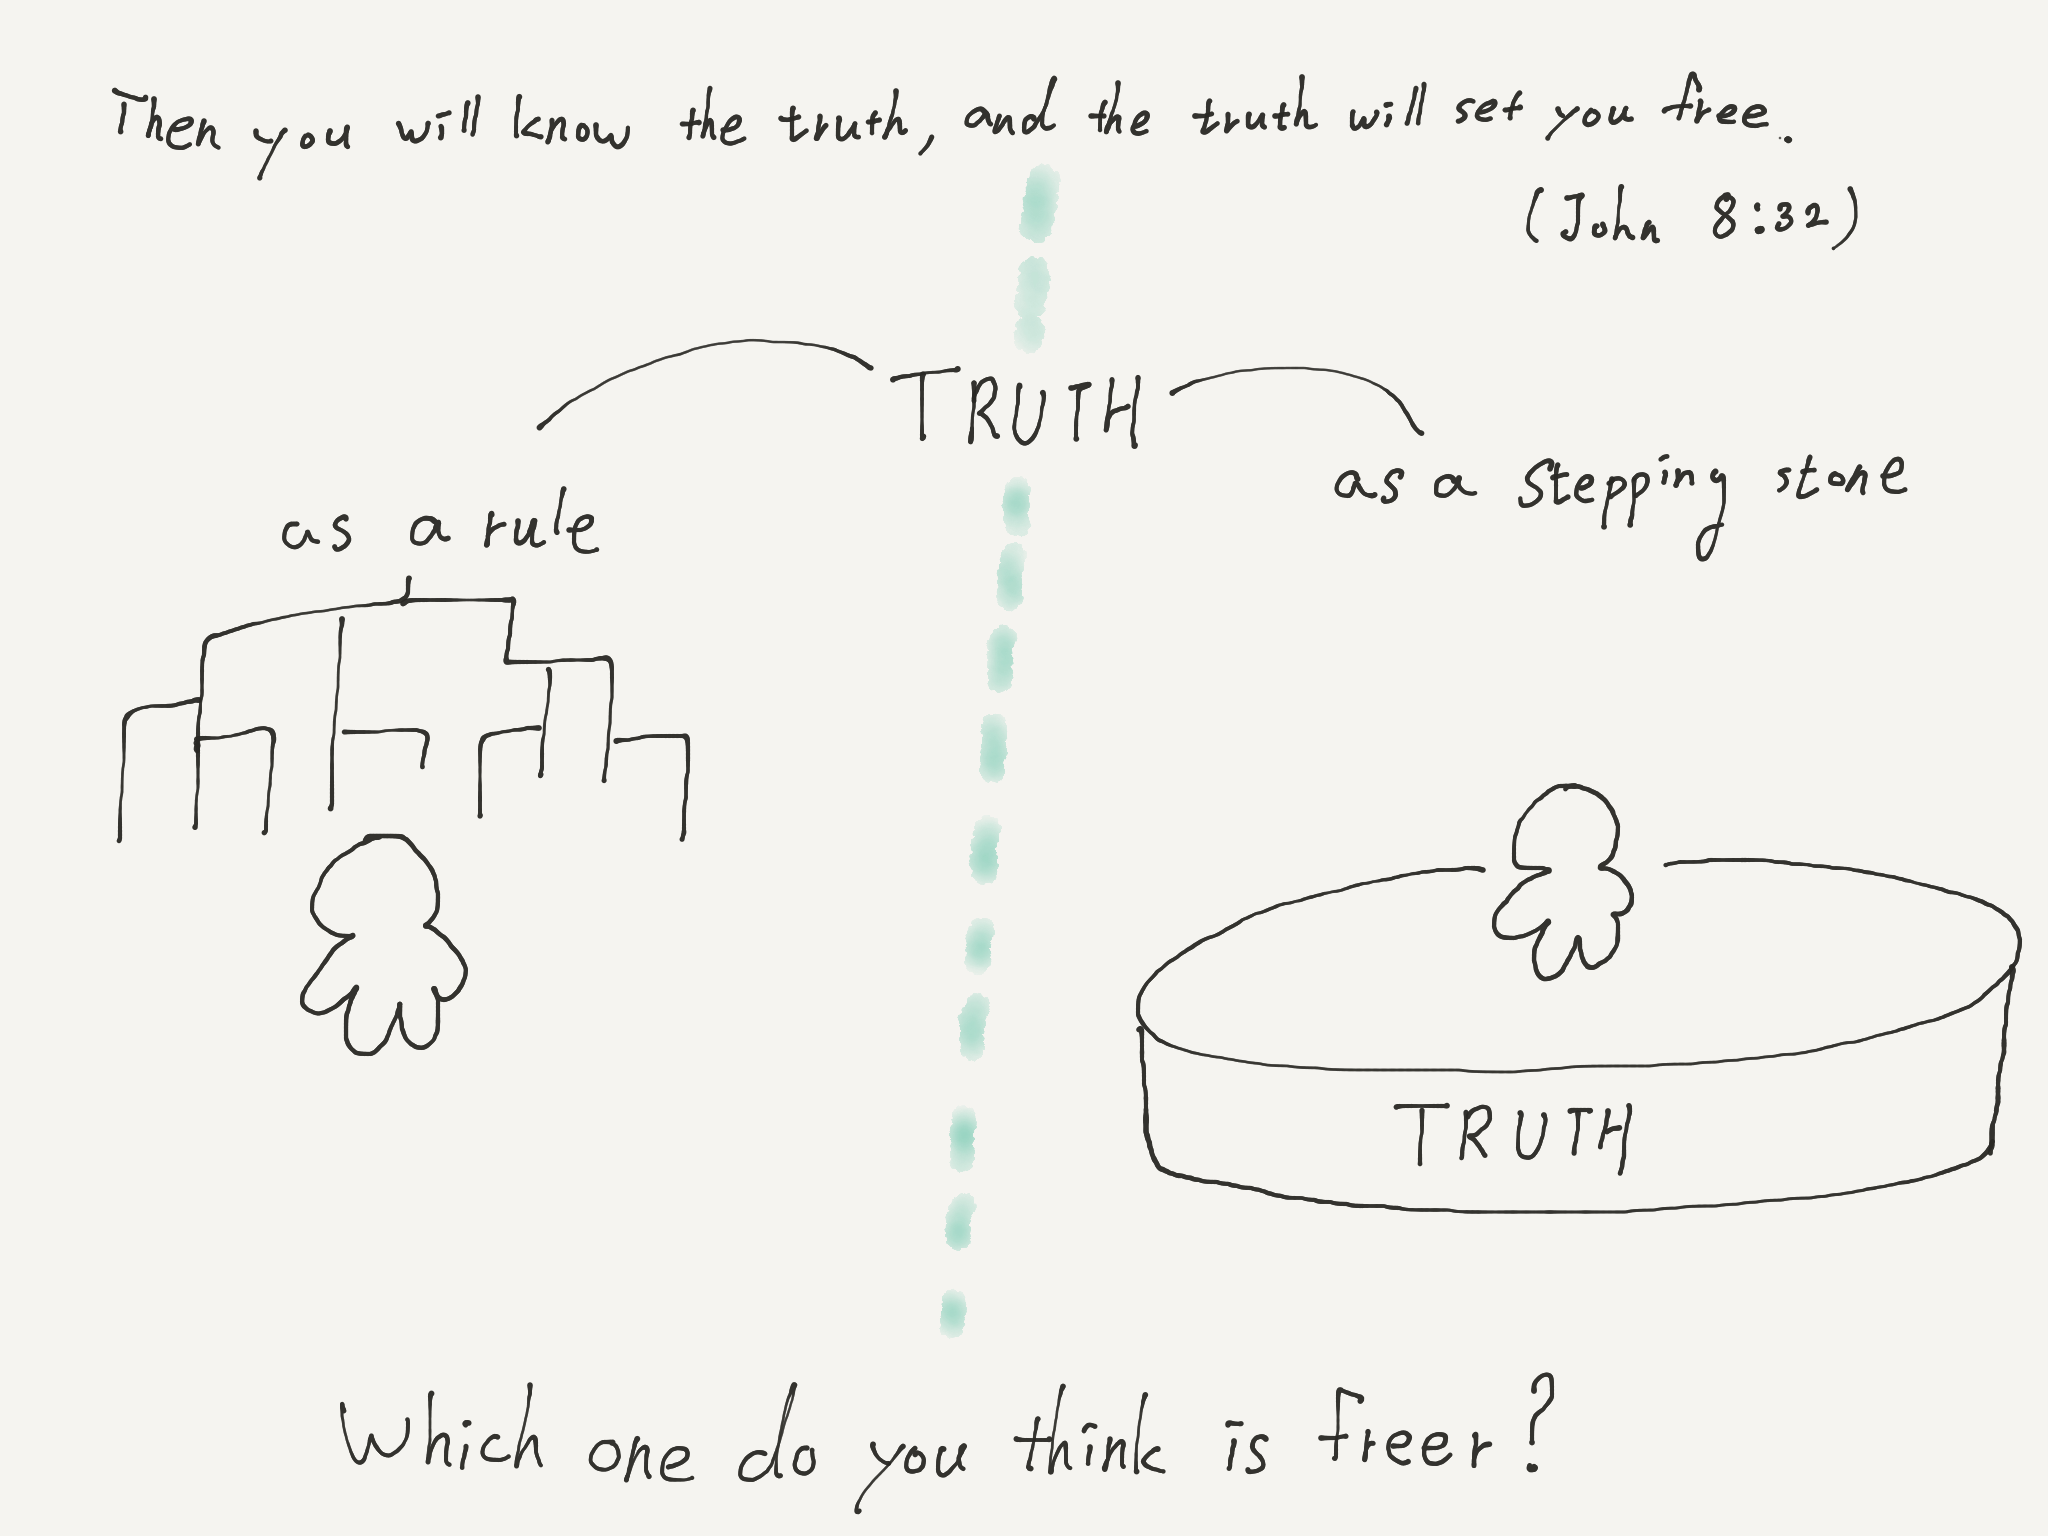 Then you will know the truth, and the truth will set you free.
(John 8:32)
TRUTH
as a rule
as a stepping stone
TRUTH
Which one do you think is freer?